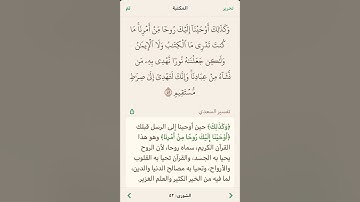 تحرير
المكتبة
تم
وَكَذَٰلِكَ أَوْحَيْنَآ إِلَيْكَ رُوحًا مِّنْ أَمْرِنَا ۚ مَا
كُنتَ تَدْرِى مَا ٱلْكِتَٰبُ وَلَا ٱلْإِيمَٰنُ
وَلَٰكِن جَعَلْنَٰهُ نُورًا نَّهْدِى بِهِۦ مَن
نَّشَآءُ مِنْ عِبَادِنَا ۚ وَإِنَّكَ لَتَهْدِىٓ إِلَىٰ صِرَٰطٍ
مُّسْتَقِيمٍ ٥٢
تفسير السعدي
﴿وَكَذَلِكَ﴾ حين أوحينا إلى الرسل قبلك
﴿أَوْحَيْنَا إِلَيْكَ رُوحًا مِنْ أَمْرِنَا﴾ وهو هذا
القرآن الكريم، سماه روحا، لأن الروح
يحيا به الجسد، والقرآن تحيا به القلوب
والأرواح، وتحيا به مصالح الدنيا والدين،
لما فيه من الخير الكثير والعلم الغزير.
الشورى: ٥٢